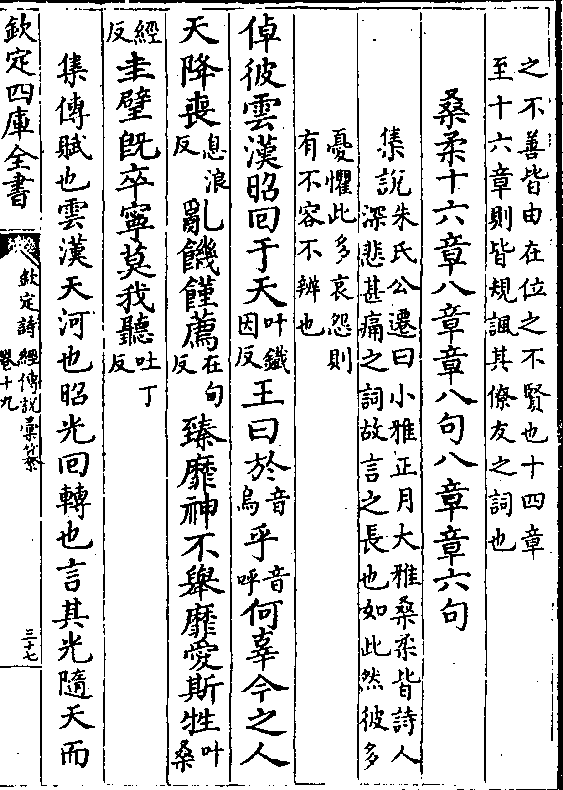 之不善皆由在位之不賢也十四章
至十六章則皆規諷其僚友之詞也
桑柔十六章八章章八句八章章六句
集說朱氏公遷曰小雅正月大雅桑柔皆詩人
深悲甚痛之詞故言之長也如此然彼多
憂懼此多哀怨則
有不容不辨也
倬彼雲漢昭回于天叶鐵因反王曰於音烏乎音呼何辜今之人
天降喪息浪反亂饑饉薦在句反臻靡神不舉靡愛斯牲叶桑
經反圭璧既卒寧莫我聽吐丁反
集傳賦也雲漢天河也昭光回轉也言其光隨天而
欽定四庫全書
欽定詩經傳說彙纂
卷十九
三十七